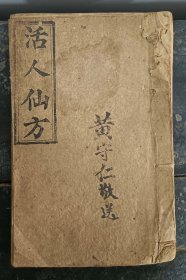 活人仙方
黄守仁敬送